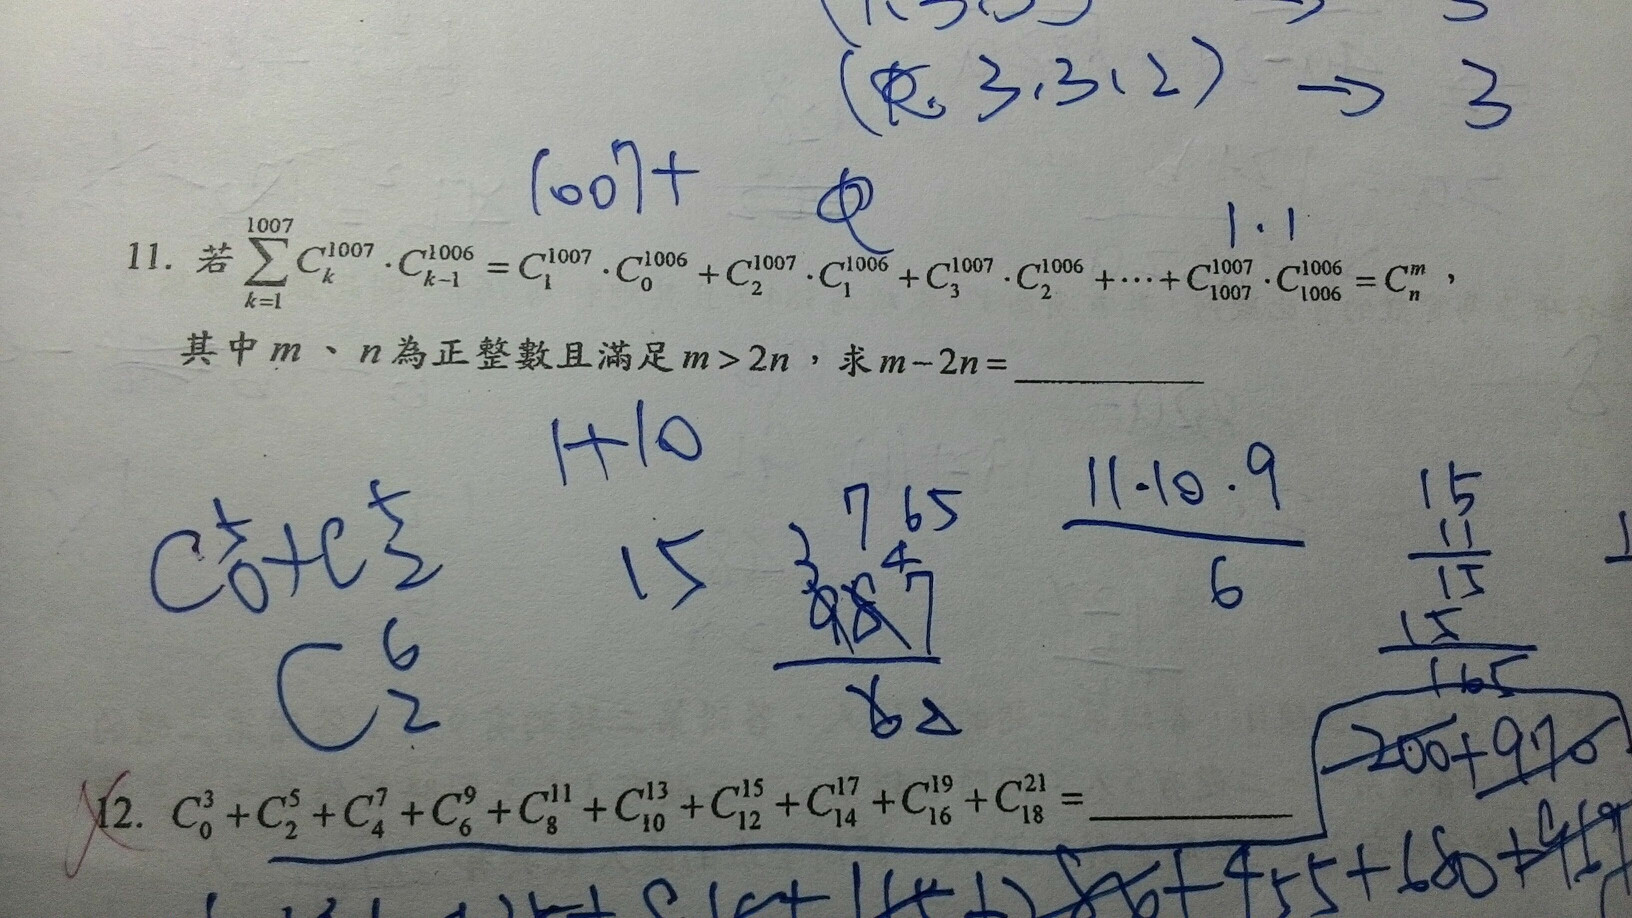 (R, 3, 3, 2) → 3
1007+
1·1
11. 若 \sum_{k=1}^{1007} C_k^{1007}·C_{k-1}^{1006} = C_1^{1007}·C_0^{1006} + C_2^{1007}·C_1^{1006} + C_3^{1007}·C_2^{1006} + ⋯ + C_{1007}^{1007}·C_{1006}^{1006} = C_n^m ,
其中 m 、 n 為正整數且滿足 m > 2n ,求 m − 2n = ________
1+10
C_0^5 + C_2^5
15
7 65
11·10·9
6
15
11
15
15
165
C_2^6
200+970
12. C_0^3 + C_2^5 + C_4^7 + C_6^9 + C_8^{11} + C_{10}^{13} + C_{12}^{15} + C_{14}^{17} + C_{16}^{19} + C_{18}^{21} = ________
+455+680+969